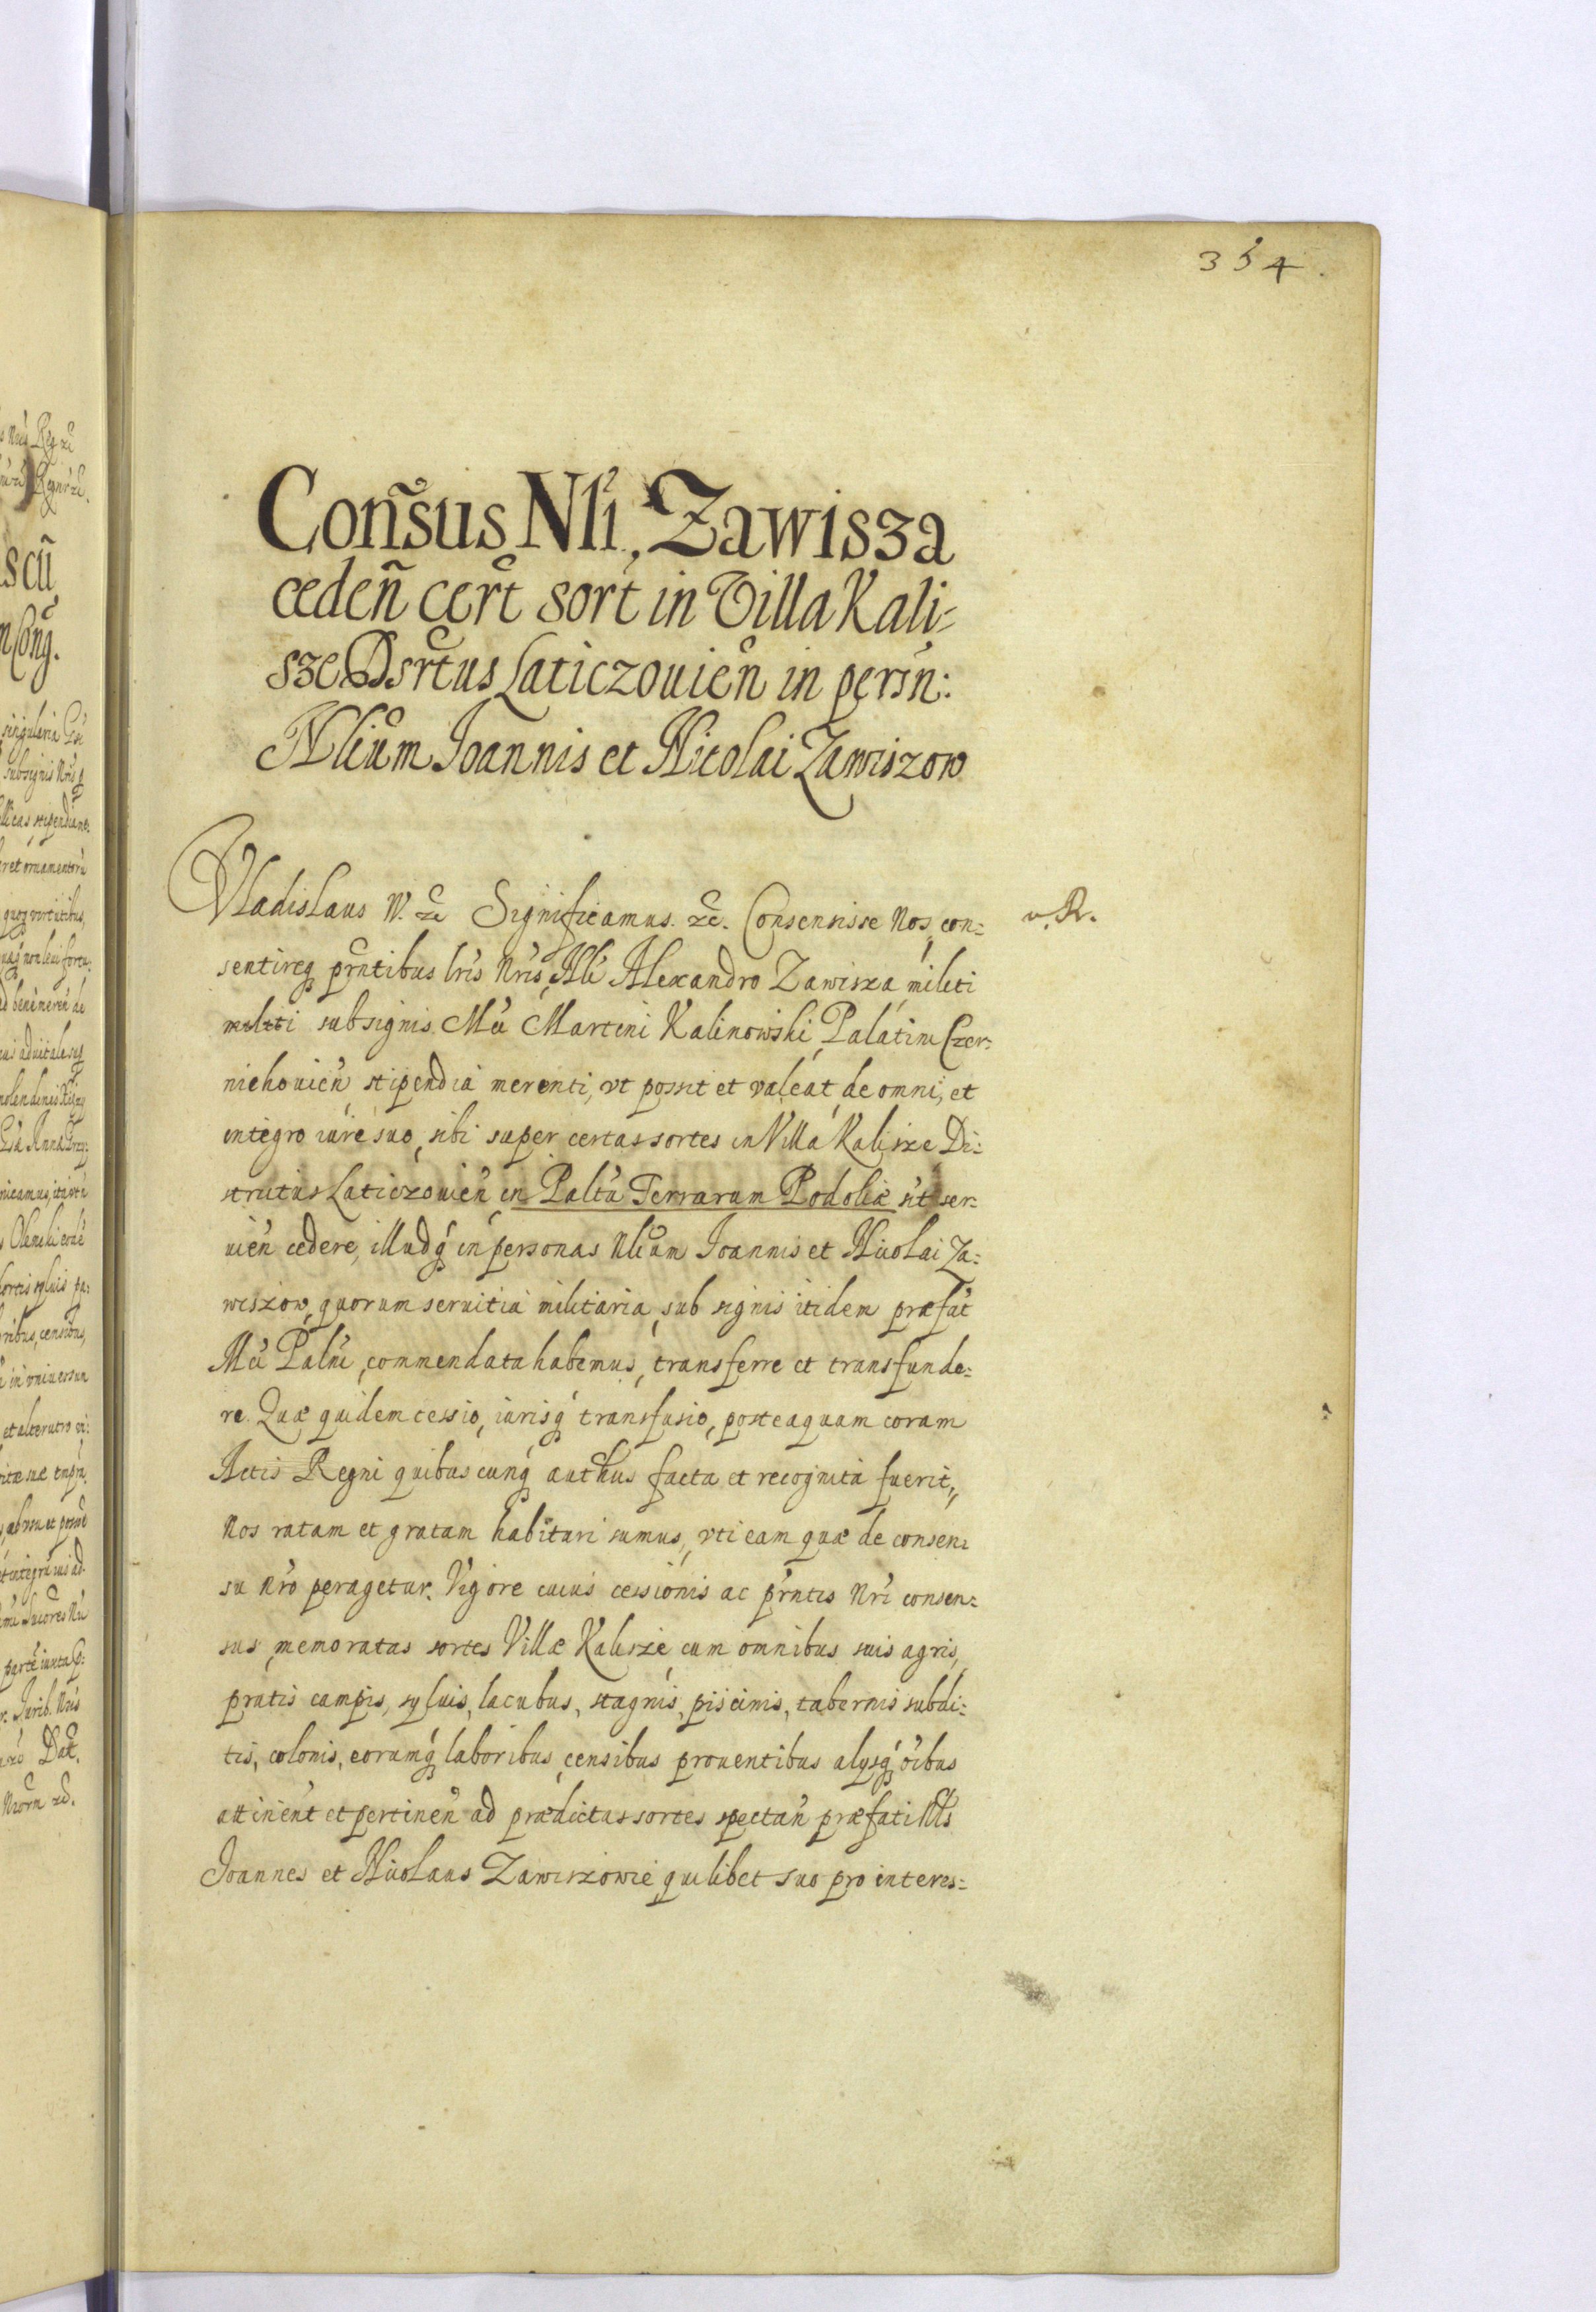 354.
Con̄sus Nli, Zawisza
ceden̄ cert̃ sort in Villa Kali=
sze Dsrtus Laticzouien̄ in persn:
Nlium Joannis et Nicolai Zawiszow
Vladislaus IV. &c Significamus. &c. Consensisse Nos, con=
v. R.
sentireq prntibus lris Nris, Nli Alexandro Zawisza militi
militi subsignis Mci Martini Kalinowski, Palatini Czer=
niehouien̄, stipendia merenti, vt possit et valeat, de omni, et
integro iure suo, sibi super certas sortes in Villa Kalisze Di=
strictus Laticzouien̄ in Paltu Terrarum Podoliæ sit ser=
uien̄ cedere, illudq in personas Nlium Joannis et Nicolai Za=
wiszow, quorum seruitia militaria, sub signis itidem præfat
Mci Palni, commendata habemus, transferre et transfunde=
re. Quæ quidem cessio, iurisq transfusio, posteaquam coram
Actis Regni quibuscunq authus facta et recognita fuerit,,
Nos ratam et gratam habituri sumus, vti eam quæ de consen=
su nro peragetur. Vigore cuius cessionis ac prntis Nri consen=
sus memoratas sortes Villæ Kalisze cum omnibus suis agris,
pratis campis, syluis, lacubus, stagnis, piscinis, tabernis subdi=
tis, colonis, eorumq laboribus, censibus prouentibus alysq oibus
attinent et pertinen̄ ad prædictas sortes spectan̄ præfati Nls
Joannes et Nicolaus Zawiszowie quilibet suo pro interes=